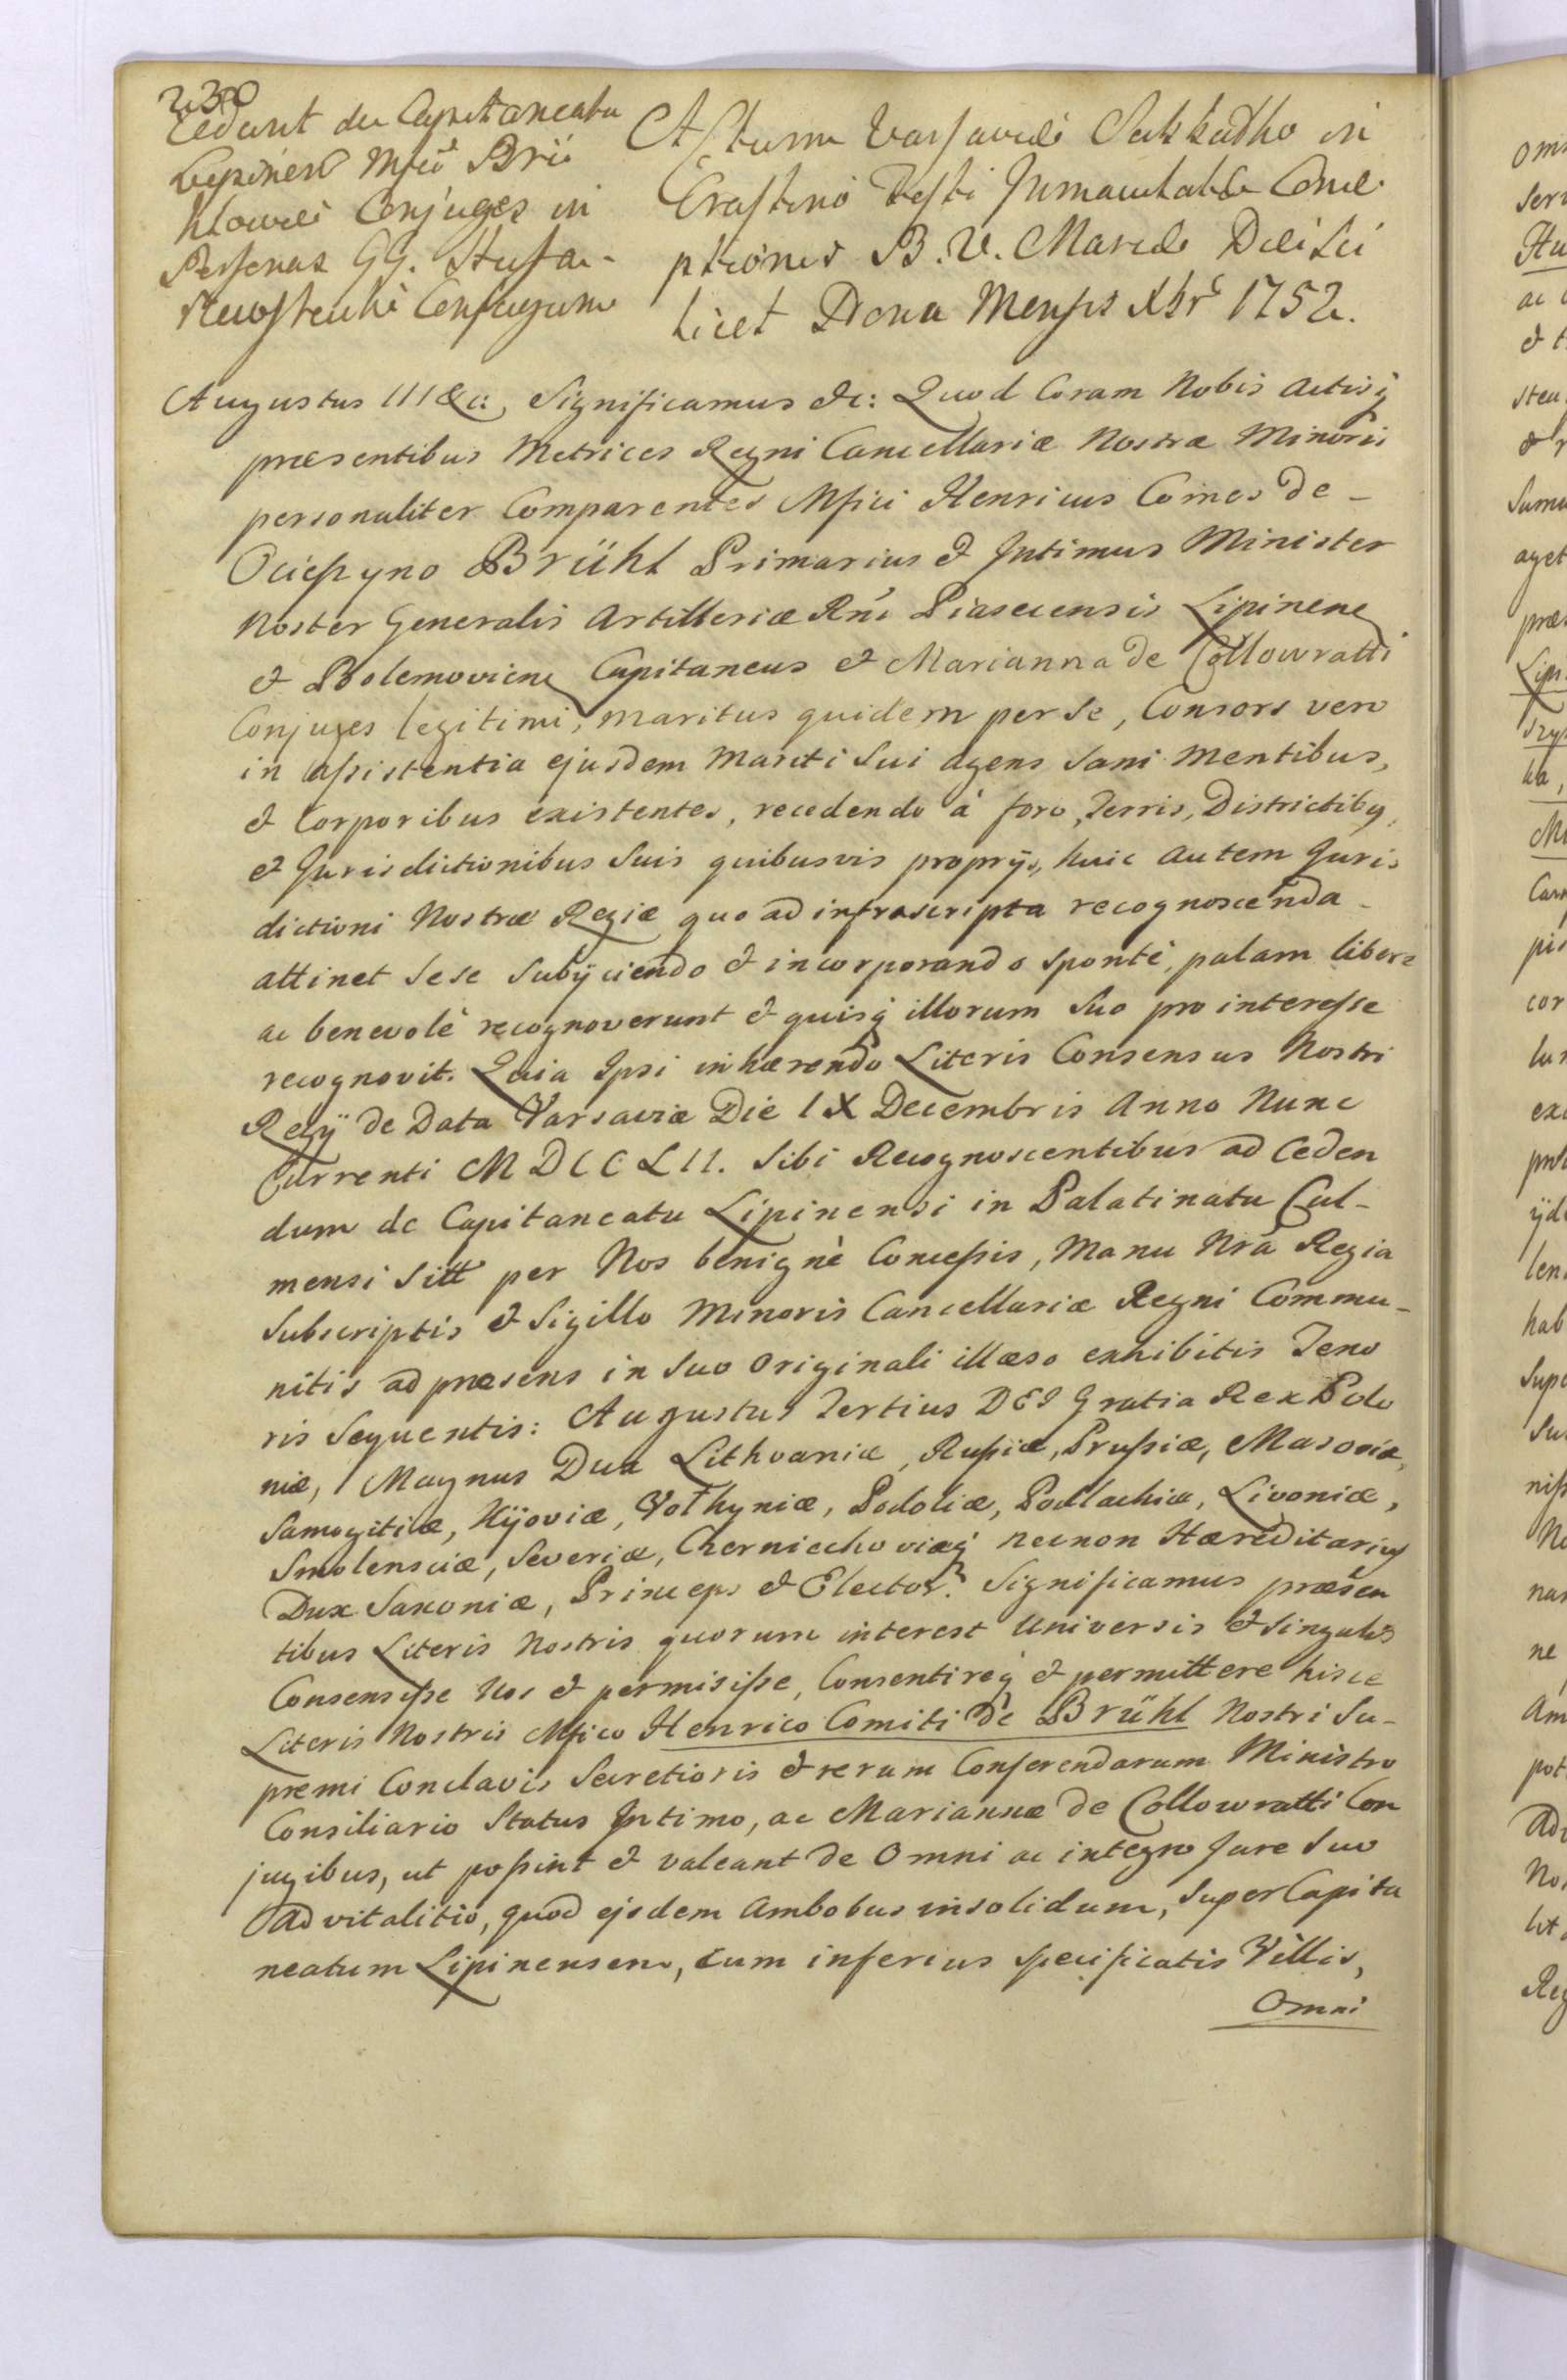 230
Cedunt de Capitaneatu
Lipinen Mfici Brü
hlowie Conjuges in
Personas GG.
Conjugum
Actum Varsaviæ Sabbatho in
Crastino Festi Immaculatæ Conce
ptionis B. V. Mariæ Die sci
licet Nona Mensis Xbris 1752.
Augustus III &c: Significamus &c: Quod Coram Nobis Actisq
præsentibus Metrices Regni Cancellariæ Nostræ Minoris
personaliter Comparentes Mfici Henricus Comes de -
Ocieszyno Brühl Primarius & Intimus Minister
Noster Generalis Artilleriæ Rni Piasecensis Lipinens
& Bolemoviens Capitaneus & Marianna de Collowratti
Conjuges legitimi, maritus quidem per se, Consors vero
in assistentia ejusdem Mariti Sui agens sani Mentibus,
& Corporibus existentes, recedendo à foro, Terris, Districtibus,
et Jurisdictionibus Suis quibusvis proprijs, huic autem Juris
dictioni Nostræ Regiæ quo ad infrascripta recognoscenda -
attinet sese subijciendo & incorporando sponte, palam libere
ac benevolè recognoverunt & quisq illorum Suo pro interesse
recognovit. Quia Ipsi inhærendo Literis Consensus Nostri
Regij de Data Varsaviæ Die IX Decembris Anno Nunc
Currenti MDCCLII. sibi Recognoscentibus ad Ceden
dum de Capitaneatu Lipinensi in Palatinatu Cul-
mensi Sitt per Nos benignè Concessis, Manu Nrâ Regia
Subscriptis & Sigillo Minoris Cancellariæ Regni Commu-
nitis ad præsens in suo Originali illæso exhibitis Teno
ris Sequentis: Augustus Tertius DEI Gratia Rex Polo
niæ, Magnus Dux Lithvaniæ, Russiæ, Prussiæ, Masoviæ,
Samogitiæ, Kijoviæ, Volhyniæ, Podoliæ, Podlachiæ, Livoniæ,
Smolensciæ, Severiæ, Czerniechoviæq necnon Hæreditarius
Dux Saxoniæ, Princeps & Elector. Significamus præsen
tibus Literis Nostris quorum interest Universis & singulis
Consensisse Nos & permisisse, Consentireq & permittere hisce
Literis Nostris Mfico Henrico Comiti de Brühl Nostri Su-
premi Conclavis Secretioris & rerum Conferendarum Ministro
Consiliario Status Intimo, ac Mariannæ de Collowratti Con
jugibus, ut possint & valeant de Omni ac integro Jure Suo
Advitalitio, quod ejsdem Ambobus insolidum, Super Capita
neatum Lipinensem, cum inferius specificatis Villis,
Omni